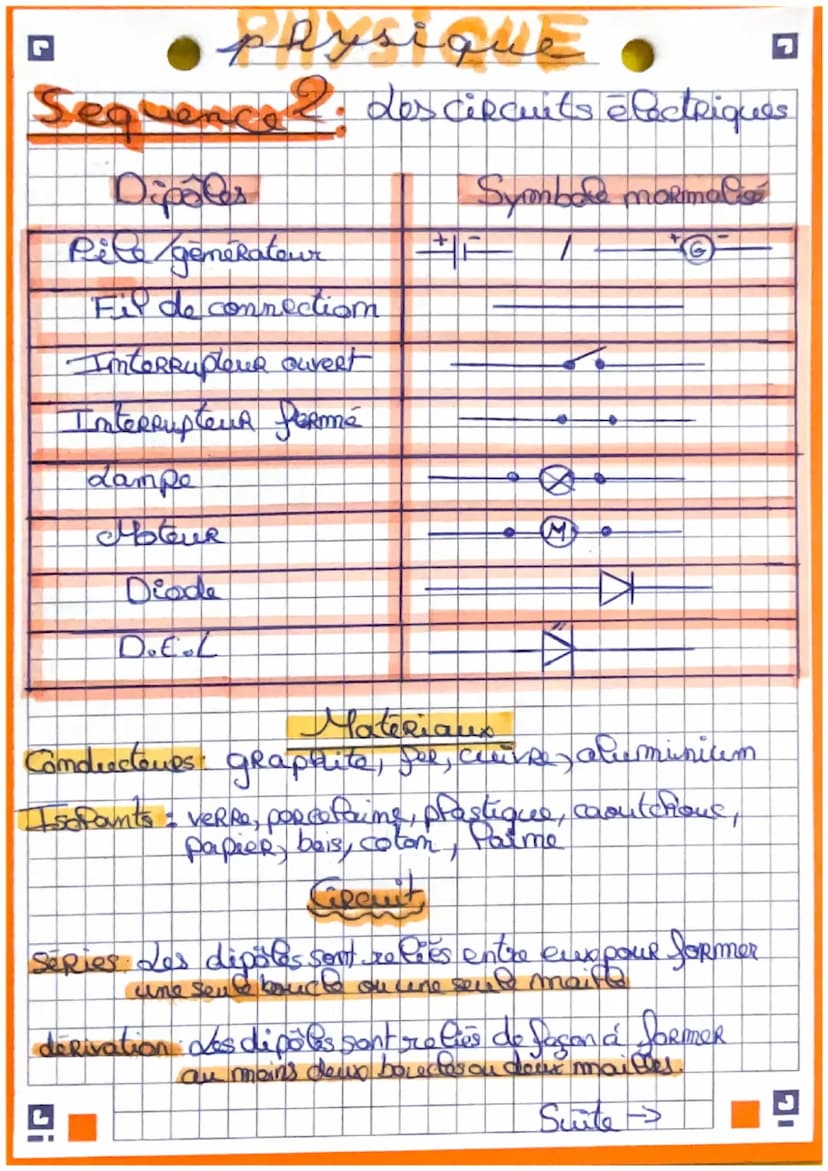 PHYSIQUE
physique
Sequence 2: Les circuits électriques
Dipôles Symbole normalisé
Pile/générateur + - / + G -
Fil de connection
Interrupteur ouvert
Interrupteur fermé
Lampe
Moteur M
Diode
D.E.L
Matériaux
Conducteurs: graphite, fer, cuivre, aluminium
Isolants: verre, porcelaine, plastique, caoutchouc,
papier, bois, coton, laine
Circuit
Séries: Les dipôles sont reliés entre eux pour former
une seule boucle ou une seule maille
dérivation: Les dipôles sont reliés de façon à former
au moins deux boucles ou deux mailles.
Suite →